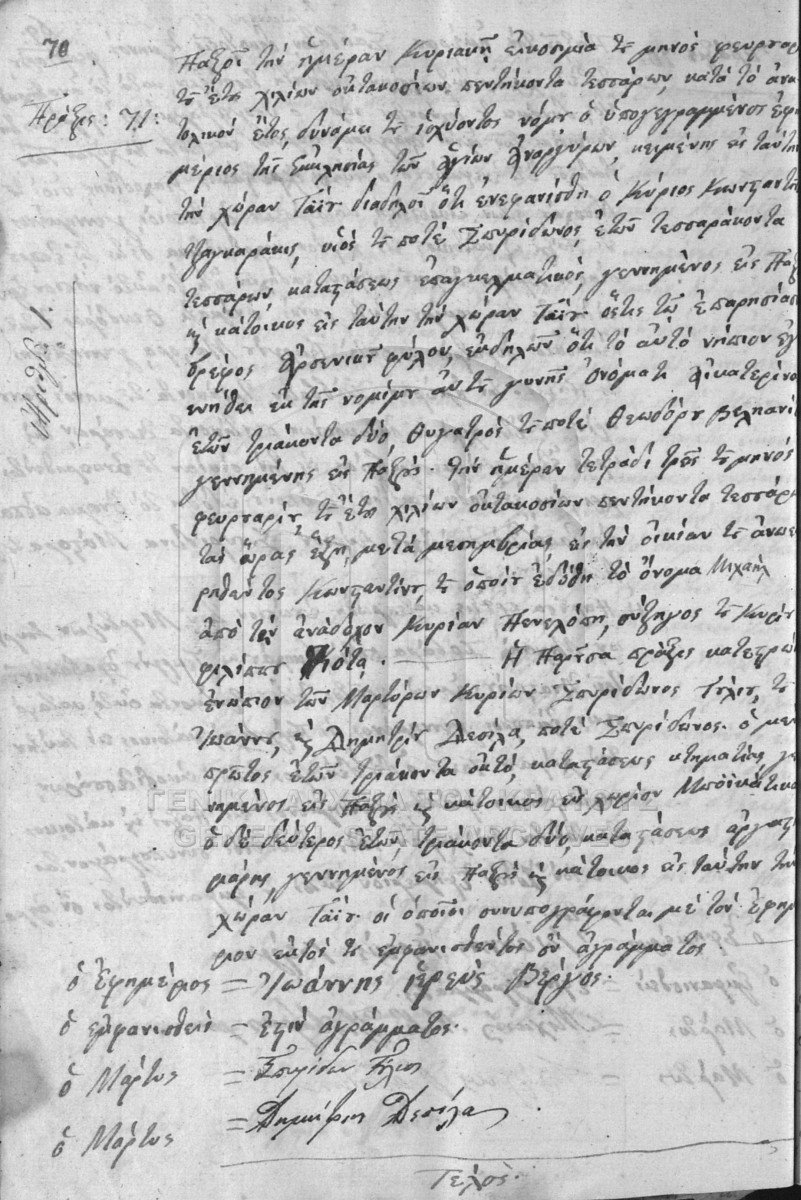 70
Πρᾶξις: 71:
Ἀριθ: 1.
Παξοῖ τὴν ἡμέραν Κυριακῇ εἰκοσιμία τοῦ μηνός φευρουαρ
τοῦ ἔτους χιλίων ὀκτακοσίων πεντήκοντα τεσσάρων, κατὰ τὸ ἀνα
τολικόν ἔτος, δυνάμει τοῦ ἰσχύοντος νόμου ὁ ὑπογεγραμμένος ἐφη
μέριος τῆς Ἐκκλησίας τῶν Ἁγίων Ἀναργύρων, κειμένης εἰς ταύτη
τὴν χώραν Γάϊου διαδηλοῖ ὅτι ἐνεφανίσθη ὁ Κύριος Κωνσταντῆ
τζαγκαράκις, υἱὸς τοῦ ποτέ Σπυρίδωνος, ἐτῶν τεσσαράκοντα
τεσσάρων, καταστάσεως ἐπαγκελματικός, γεννημένος εἰς Παξ
κ κάτοικος εἰς ταύτην τὴν χώραν Γάϊου ὅστις τῶ ἐπαρησίασε
βρέφος Ἀρσενικοῦ φύλου, ἐκδηλῶν ὅτι τὸ αὐτὸ νήπιον ἐγ
ενήθει ἐκ τῆς νομίμου αὐτοῦ γυνῆς ὀνόματι Αἰκατερίνα
ἐτῶν τριάκοντα δύο, θυγατρός τοῦ ποτέ Θεωδόρου Βεληανί
γεννημένης εἰς Παξούς. τὴν ἡμέραν τετράδι τρεῖς τοῦ μηνός
φευρουαρίου τοῦ ἔτους χιλίων ὀκτακοσίων πεντήκοντα τεσσάρω
τὰς ὥρας ἕξη, μετὰ μεσημβρίας εἰς τὴν οἰκίαν τοῦ ἄνωε
ρηθέντος Κωνσταντίνου, τοῦ ὁποίου ἐδώθη τὸ ὄνομα Μιχαήλ
ἀπὸ τὸν ἀνάδοχον Κυρίαν Πενελόπη, σύζηγος τοῦ Κυρίου
φιλίππου Κιότα. Ἡ Παροῦσα πρᾶξις κατεστρώ
ἐνώπιον τῶν Μαρτύρων Κυρίων Σπυρίδωνος Τζίλιου, τοῦ
Ἰωάννου, κ Δημητρίου Δεσίλα, ποτέ Σπυρίδωνος. ὁ μέν
πρῶτος ἐτῶν τριάκοντα ὀκτό, καταστάσεως κτηματίας, γε
νημένος εἰς Παξούς κ κάτοικος εἰς χωρίον Μποϊκάτικα
ὁ δέ δεύτερος ἐτῶν, τριάκοντα δύο, καταστάσεως ἀργαστη
ριάρης, γεννημένος εἰς Παξούς κ κάτοικος εἰς ταύτην τὴν
χώραν Γάϊου. οἱ ὁποῖοι συνυπογράφονται μὲ τὸν Ἐφημ
ριον ἐκτός τοῦ ἐμφανισθέντος ὄν ἀγράμματος
ὁ Ἐφημέριος = Ἰωάννης ἱερεύς Βέργος.
ὁ ἐμφανισθείς = ἐστίν ἀγράμματος.
ὁ Μάρτυς = Σπυρίδων
ὁ Μάρτυς = Δημήτρης Δεσύλας
Τέλος.
ΓΕΝΙΚΑ ΑΡΧΕΙΑ ΤΟΥ ΚΡΑΤΟΥΣ
GENERAL STATE ARCHIVES